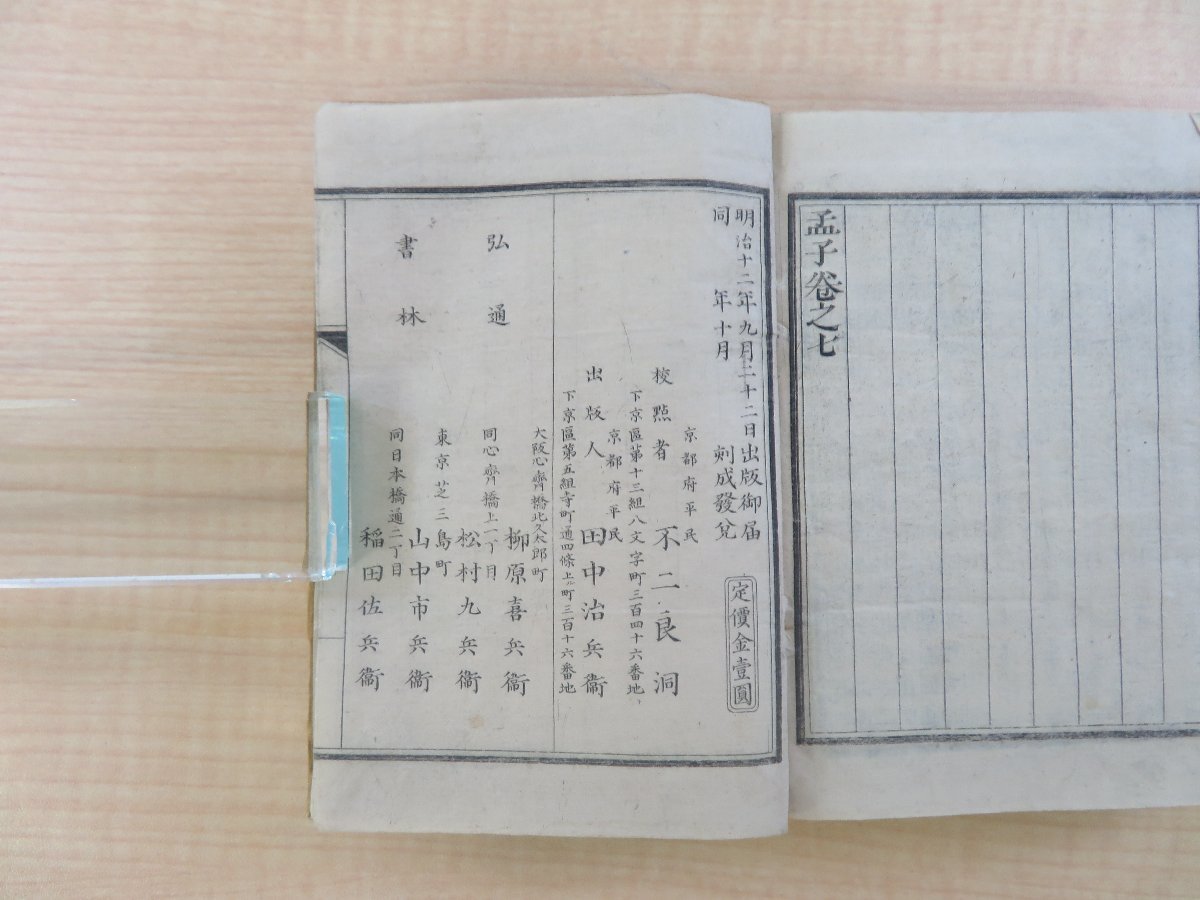 孟子卷之七
明治十二年九月二十二日出版御届
同年十月刻成發兌
定價金壹圓
京都府平民
校點者 不二良洞
下京區第十三組八文字町三百四十六番地
京都府平民
出版人 田中治兵衞
下京區第五組寺町通四條上ル町三百十六番地
弘通
書林
大阪心齊橋北久太郎町
柳原喜兵衞
同心齊橋上一丁目
松村九兵衞
東京芝三島町
山中市兵衞
同日本橋通二丁目
稲田佐兵衞